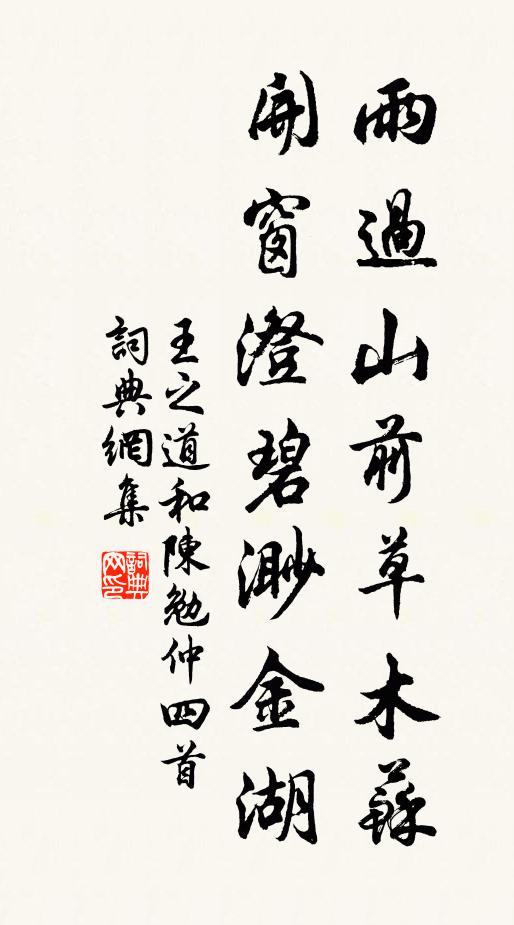 雨過山前草木蘇
開窗澄碧渺金湖
王之道和陳勉仲四首
詞典網集
詞典網印